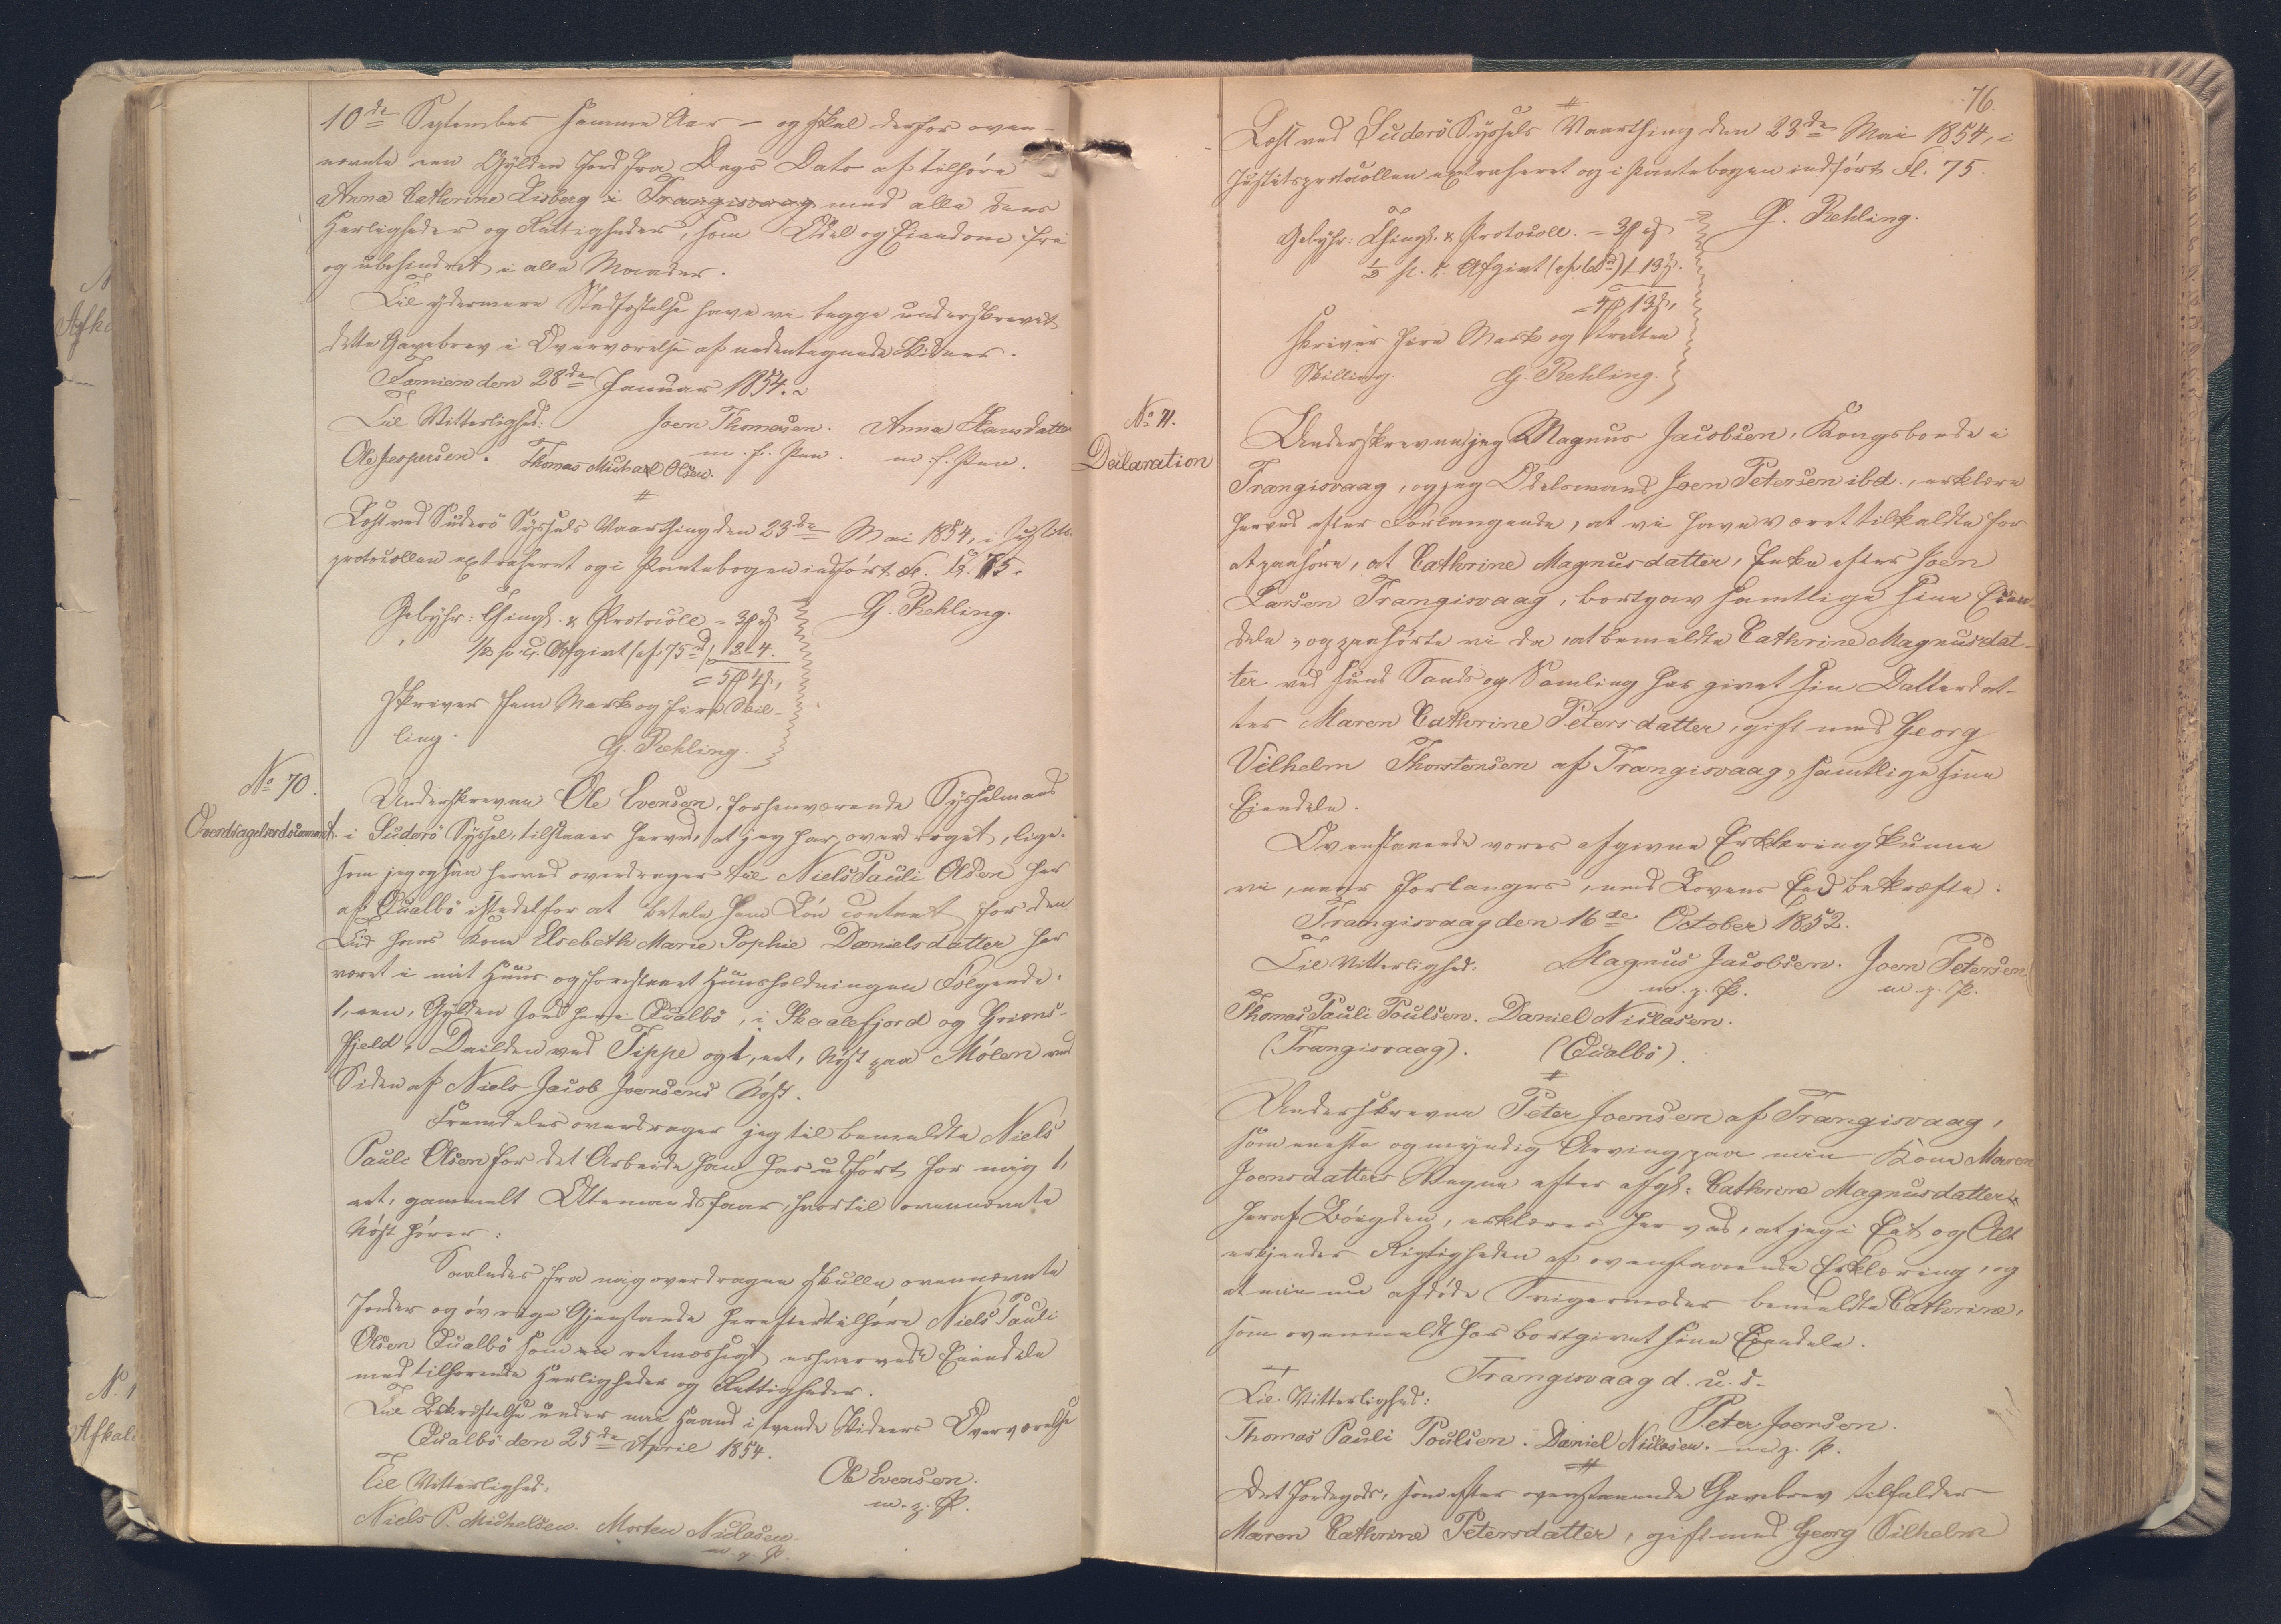 10de September samme Aar – og skal derfor oven-
nævnte een Gylden Jord fra Dags Dato af tilhøre
Anna Cathrine Lisberg i Trangisvaag med alle dens
Herligheder og Rettigheder, som Odel og Eiendom frie
og ubehindret i alle Maader.
Til ydermere Stadfæstelse have vi begge underskrevet
dette Gavebrev i Overværelse af nedentegnede Vidner.
Famien den 28de Januar 1854.
Til Vitterlighed: Joen Thomasen. Anna Hansdatter
Ole Jespersen. Thomas Michael Olsen. m. f. Pen. m. f. Pen.
Læst ved Suderö Syssels Vaarthing den 23de Mai 1854, i Justits-
protocollen extraheret og i Pantebogen indført Fl. 75.
Gebyhr: Thingl. & Protocoll. = 3 G. Rehling.
1/2 p. C. Afgivt (af 75 2 – 4.
= 5 4
skriver fem Mark og fire Skil-
ling. G. Rehling.
No 70.
Underskrevne Ole Evensen, forhenværende Sysselmand
Overdragelsesdocument. i Suderö Syssel, tilstaaer herved, at jeg har overdraget, lige-
som jeg ogsaa herved overdrager til Niels Pauli Olsen her
af Qualbö istedetfor at betale ham Løn contant for den
Tid hans Kone Elsebeth Marie Sophie Danielsdatter har
været i mit Huus og forestaaet Huusholdningen Følgende:
1, een, Gylden Jord her i Qualbö, i Skaalefjord og Griins-
fjeld, Deilden ved Tippe og 1, eet, Nöst paa Mölen ved
Siden af Niels Jacob Joensens Nöst.
Fremdeles overdrager jeg til bemeldte Niels
Pauli Olsen for det Arbeide han har udført for mig 1,
eet, gammelt Ottemandsfaar, hvortil ovennævnte
Nöst hører:
Saaledes fra mig overdragne skulle ovennævnte
Jorder og øvrige Gjenstande herefter tilhøre Niels Pauli
Olsen Qualbö som en retmæssigt erhvervede Eiendele
med tilhørende Herligheder og Rettigheder.
Til Bekræftelse under min Haand i tvende Vidners Overværelse
Qualbö den 25de April 1854.
Til Vitterlighed: Ole Evensen.
m. p. P.
Niels P. Michelsen. Morten Niclasen.
m. p. P.
76.
Læst ved Suderö Syssels Vaarthing den 23de Mai 1854, i
Justitsprotocollen extraheret og i Pantebogen indført Fl. 75.
Gebyhr: Thingl. & Protocoll. = 3 G. Rehling.
1/2 p. C. Afgivt (af 60 1 – 13
= 4 13
skriver fire Mark og tretten
Skilling. G. Rehling.
No 71.
Declaration
Underskrevne jeg Magnus Jacobsen, Kongsbonde i
Trangisvaag, og jeg Odelsmand Joen Petersen ibd., erklære
herved efter Forlangende, at vi have været tilkaldte for
at paahøre, at Cathrine Magnusdatter, Enke efter Joen
Larsen Trangisvaag, bortgav samtlige sine Eien-
dele, og paahørte vi da, at bemeldte Cathrine Magnusdat-
ter ved sund Sands og Samling har givet sin Datterdat-
ter Maren Cathrine Petersdatter, gift med Georg
Vilhelm Thorstensen af Trangisvaag, samtlige sine
Eiendele.
Ovenstaaende vores afgivne Erklæring kunne
vi, naar forlanges, med Lovens Eed bekræfte.
Trangisvaag den 16de October 1852.
Til Vitterlighed: Magnus Jacobsen. Joen Petersen
m. p. P. m. p. P.
Thomas Pauli Poulsen. Daniel Niclasen.
(Trangisvaag). (Qualbö).
Underskrevne Peter Joensen af Trangisvaag,
som eneste og myndig Arving paa min Kone Maren
Joensdatters Vegne efter afgl. Cathrine Magnusdatter
heraf Böigden, erklærer herved, at jeg i Eet og Alt
erkjender Rigtigheden af ovenstaaende Erklæring, og
at min nu afdøde Svigermoder bemeldte Cathrine,
som ovenmeldt har bortgivet sine Eiendele.
Trangisvaag d. u. s.
Til Vitterlighed: Peter Joensen.
Thomas Pauli Poulsen. Daniel Niclasen. m. p. P.
Det Jordegods, som efter ovenstaaende Gavebrev tilfalder
Maren Cathrine Petersdatter, gift med Georg Vilhelm